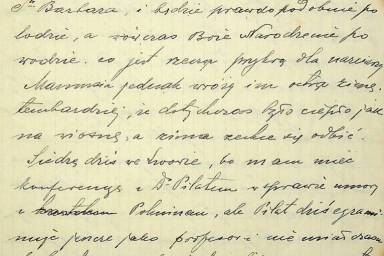 Sta Barbara, i będzie prawdopodobnie po
lodzie, a wówczas Boże Narodzenie po
wodzie. co jest rzeczą przykrą dla narciarzy
Mammaia jednak wróży im ostrą zimę
tembardziej, że dotychczas było ciepło jak
na wiosnę, a zima zechce się odbić.
Siedzę dziś we Lwowie, bo mam mieć
konferencyę z Dr Pilatem w sprawie umowy
z Pohnman, ale Pilat dziś egzami
nuje jeszcze jako profesor i nie miał czasu